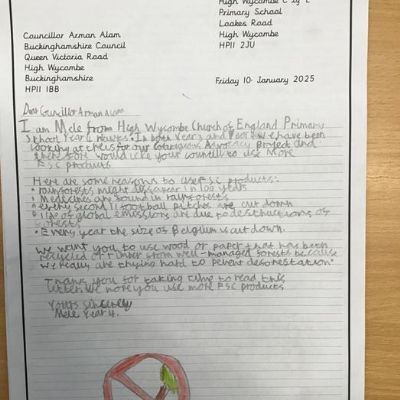 High Wycombe C of E
Primary School
Loakes Road
High Wycombe
HP11 2JU
Councillor Arman Alam
Buckinghamshire Council
Queen Victoria Road
High Wycombe
Buckinghamshire
HP11 1BB
Friday 10th January 2025
Dear Councillor Arman Alam
I am Mele from High Wycombe Church of England Primary
School Year 4 Hawks. In both Year 3 and Year 4 we have been
looking at this for our Courageous Advocacy Project and
therefore would like your council to use more
FSC products
Here are some reasons to use FSC products:
• rainforests might dissapear in 100 years
• Medicines are found in rainforests
• every second 1 football pitches are cut down
of global emissions are due to destructions of
forests
• Every year the size of Belgium is cut down.
We want you to use wood or paper that has been
recycled or timber from well-managed forests because
we really are trying hard to pevent deforestation.
Thank you for taking time to read this
letter. We hope you use more FSC products
Yours sincerely
Mele Year 4.